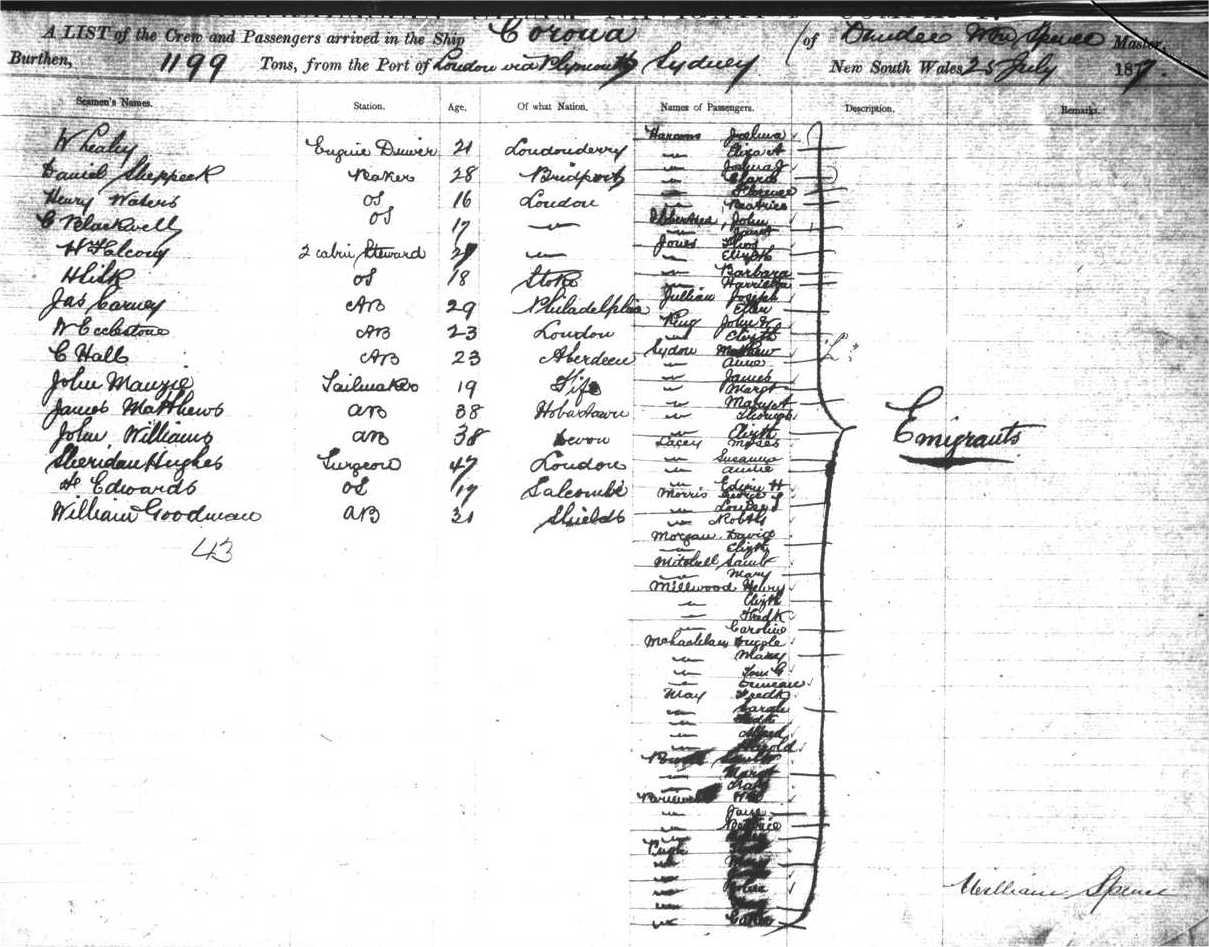 A LIST of the Crew and Passengers arrived in the Ship Corona of Dundee Wm Spence Master,
Burthen, 1199 Tons, from the Port of London via Plymouth Sydney New South Wales 25 July 187
Seamen's Names. Station. Age. Of what Nation. Names of Passengers. Description. Remarks.
W Healy Engine Driver 21 Londonderry
Daniel Sheppeck Baker 28 Bridport
Henry Waters OS 16 London
C Blackwell OS 17 "
H Falcony 2 cabin Steward "
H Sisk OS 18 Stoke
Jas Carney AB 29 Philadelphia
W Ecclestone AB 23 London
C Hall AB 23 Aberdeen
John Manzie Sailmaker 19 Fife
James Matthews AB 38 Hobartown
John Williams AB 38 Devon
Sheridan Hughes Surgeon 47 London
Edwards OS 19 Salcombe
William Goodman AB 31 Shields
43
Joshua
" Eliza A
" Joshua J
" Clara
" Florence
" Beatrice
John
" Janet
Jones Thos
" Elizth
" Barbara
" Harriett
Jullian Joseph
" Ellen
King John W
" Elizth
Sydow Mathew
" Annie
" James
" Margt
" Mary A
"
" Elizth
Lacey Moses
" Susanna
" Annie
" Edwin H
Morris George S
" Louisa
" Robt
Morgan David
" Elizth
Mitchell Saml
" Mary
Millwood Henry
" Elizth
" Fredk
" Caroline
" Mary
"
" Duncan
May Fredk
" Sarah
" Fredk
" Alfred
"
" Margt
"
" Jane
" Beatrice
Pugh
Emigrants
William Spence